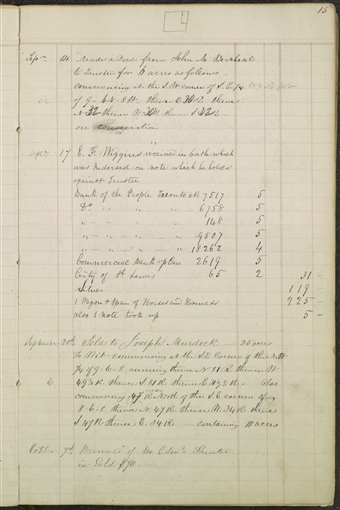 15
Sept 14 Made a Deed from John M.
to Trustee for 11 acres as follows
commencing at the S.W. corner of S.E. 1/4
of 9-6-8 W. thence E. thence
N. 32 thence W. thence S. 32 R
no consideration
Sept 17 E. F. Wiggins received in cash which
was Indorsed on note which he holds
against Trustee
Bank of the People 7517 5
Do " " 6758 5
" " " 148 5
" " " 9527 5
" " " 18262 4
Commercial Bank 2619 5
City of St Lewis 65 2 31 -
Silver 119 -
1 Wagon & Span of Horses and Harness 225 -
also 1 note took up 5 -
September 20th Sold to Joseph Murdock - 20 acres
To Wit commencing at the S.E. Corner of the N.W.
1/4 of 9-6-8 running thence N. 81 R. thence W.
49 3/4 R. thence S. 81 R. thence E. 49 3/4 R - Also
commencing 47 rods North of the S.E. corner of
8-6-8 thence N. 47 R. thence W. 34 R. thence
S. 47 R thence E. 34 R - containing 10 acres
October 7th Received of Mr Eden's Trustee
in Gold